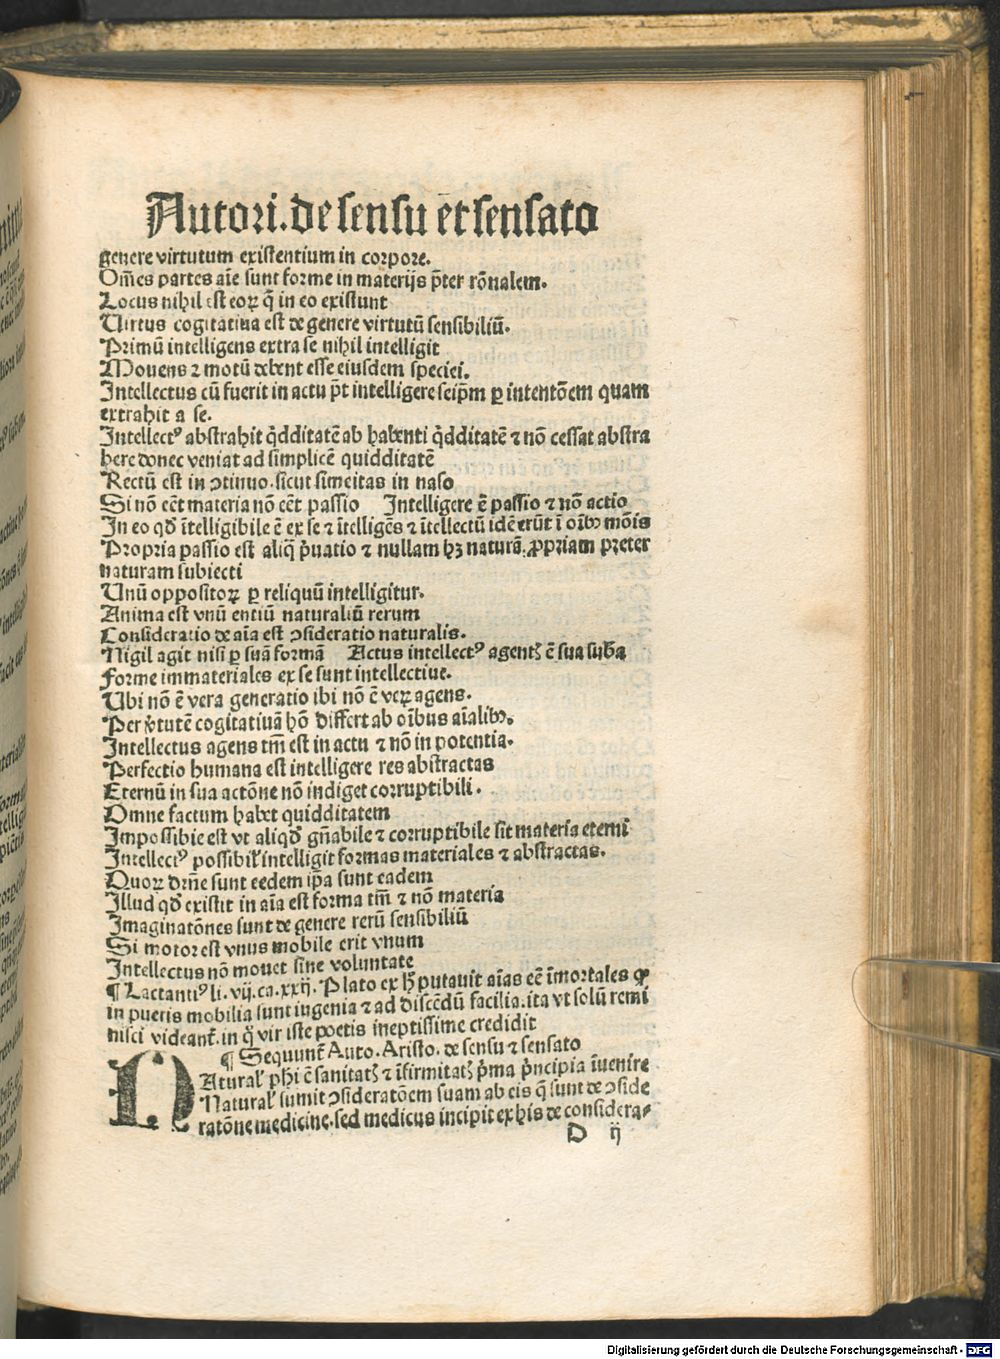 Autori. de sensu et sensato
genere virtutum existentium in corpore.
Om̄es partes aīe sunt forme in materijs p̄ter rōnalem.
Locus nihil est eoꝝ q̄ in eo existunt
Virtus cogitatiua est de genere virtutū sensibiliū.
Primū intelligens extra se nihil intelligit
Mouens ⁊ motū debent esse eiusdem speciei.
Intellectus cū fuerit in actu p̄t intelligere seip̄m ꝑ intentōem quam
extrahit a se.
Intellectꝰ abstrahit q̇dditatē ab habenti q̇dditatē ⁊ nō cessat abstra
here donec veniat ad simplicē quidditatē
Rectū est in ꝯtinuo. sicut simeitas in naso
Si nō eēt materia nō eēt passio Intelligere ē passio ⁊ nō actio
In eo qđ ītelligibile ē ex se ⁊ ītelligēs ⁊ ītellectū idē erūt ī oībꝫ mōis
Propria passio est aliq̄ p̄uatio ⁊ nullam hꝫ naturā ꝓpriam preter
naturam subiecti
Vnū oppositoꝝ ꝑ reliquū intelligitur.
Anima est vnū entiū naturaliū rerum
Consideratio de aīa est ꝯsideratio naturalis.
Nigil agit nisi ꝑ suā formā Actus intellectꝰ agentꝭ ē sua sub̄a
Forme immateriales ex se sunt intellectiue.
Vbi nō ē vera generatio ibi nō ē veꝝ agens.
Per v̇tutē cogitatiuā hō differt ab oībus aīalibꝫ.
Intellectus agens tm̄ est in actu ⁊ nō in potentia.
Perfectio humana est intelligere res abstractas
Eternū in sua actōne nō indiget corruptibili.
Omne factum habet quidditatem
Impossibie est vt aliqđ gn̄abile ⁊ corruptibile sit materia eterni
Intellectꝰ possibil̛ intelligit formas materiales ⁊ abstractas.
Quoꝝ dr̄ne sunt eedem ip̄a sunt eadem
Illud qđ existit in aīa est forma tm̄ ⁊ nō materia
Imaginatōnes sunt de genere rerū sensibiliū
Si motor est vnus mobile erit vnum
Intellectus nō mouet sine voluntate
¶ Lactantiꝰ li. vij. ca. xxij. Plato ex hꝭ putauit aīas eē īmortales ꝙ
in pueris mobilia sunt iugenia ⁊ ad discēdū facilia. ita vt solū remi
nisci videant̛. in q̇ vir iste poetis ineptissime credidit
¶ Sequunt̛ Auto. Aristo. de sensu ⁊ sensato
NAtural̛ phi ē sanitatꝭ ⁊ īfirmitatꝭ p̄ma p̄ncipia īuenire
Natural̛ sumit ꝯsideratōem suam ab eis q̄ sunt de ꝯside
ratōne medicine. sed medicus incipit ex his de considera-
D ij
Digitalisierung gefördert durch die Deutsche Forschungsgemeinschaft - DFG